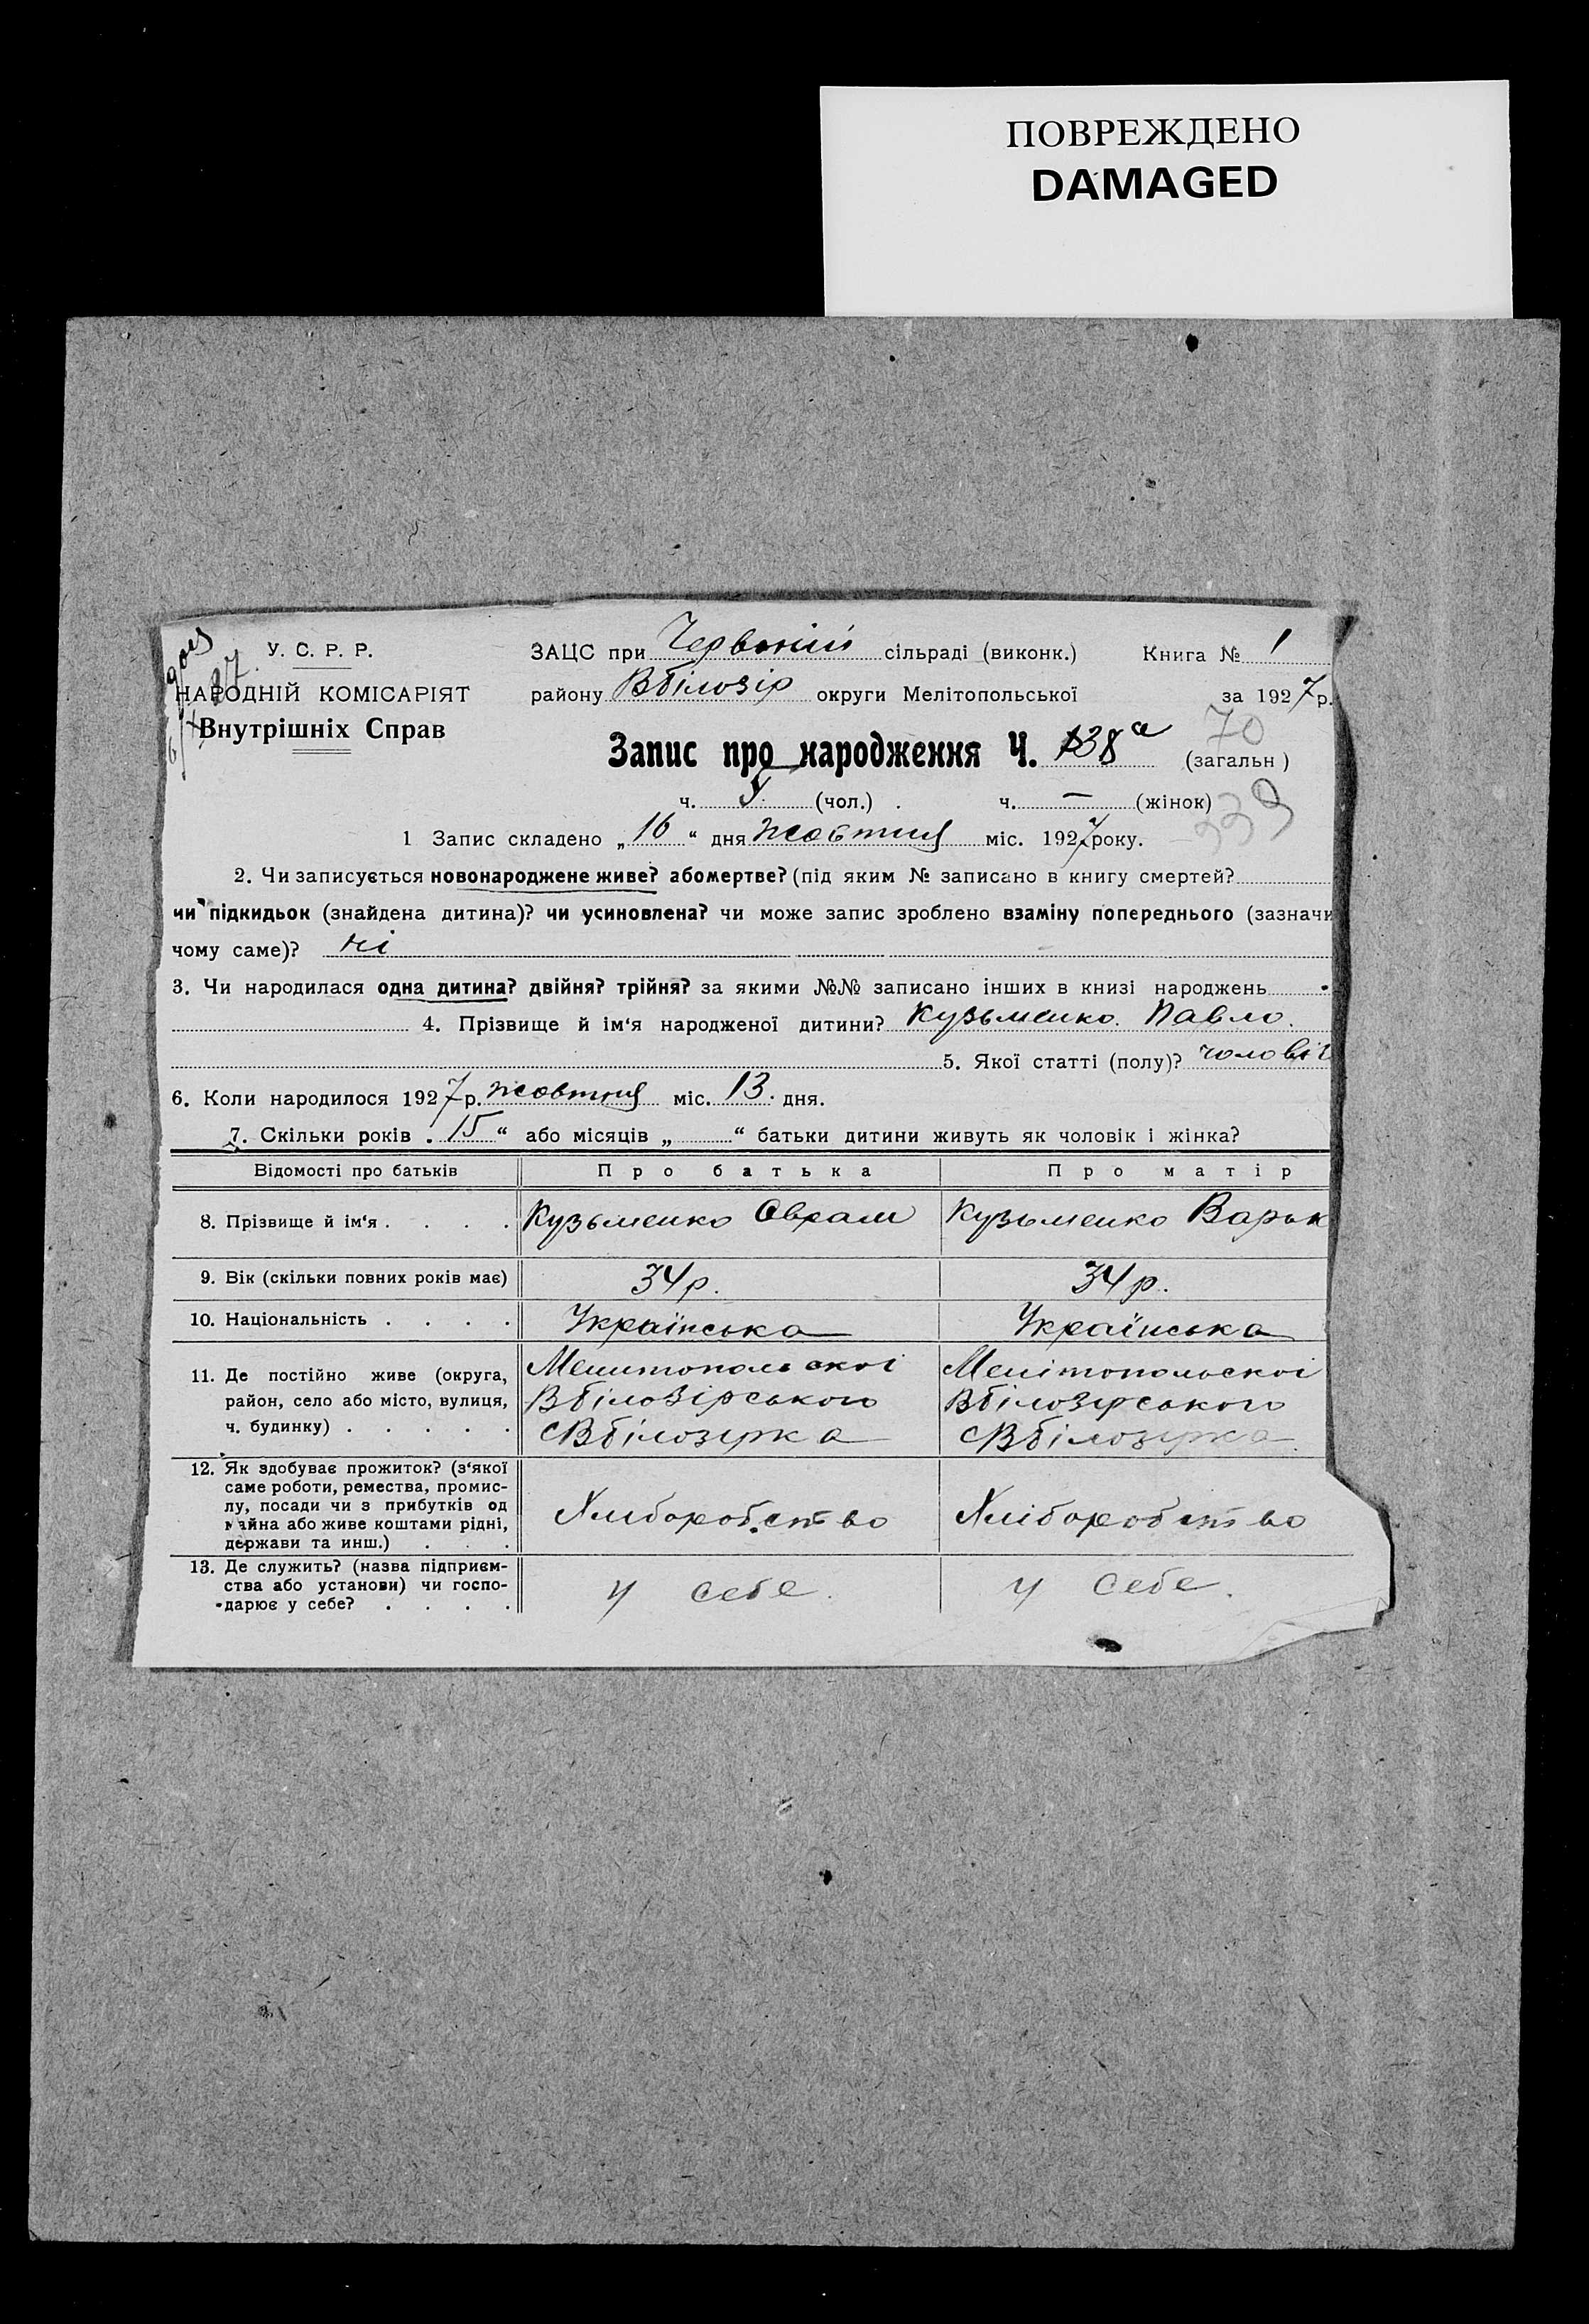 ПОВРЕЖДЕНО
DAMAGED
У. С. Р. Р.
НАРОДНІЙ КОМІСАРІЯТ
Внутрішніх Справ
ЗАЦС при Червоній сільраді (виконк.) Книга № 1
району Вбілозір округи Мелітопольської за 1927 р.
Запис про народження Ч. 138а (загальн)
70
ч. (чол.) . ч. — (жінок)
339
1 Запис складено „16“ дня жовтня міс. 1927 року.
2. Чи записується новонароджене живе? або мертве? (під яким № записано в книгу смертей?
чи підкидьок (знайдена дитина)? чи усиновлена? чи може запис зроблено взаміну попереднього (зазначи
чому саме)? ні
3. Чи народилася одна дитина? двійня? трійня? за якими №№ записано інших в книзі народжень
4. Прізвище й ім‘я народженої дитини? Кузьменко. Павло.
5. Якої статті (полу)? чоловіч
6. Коли народилося 1927 р. жовтня міс. 13. дня.
7. Скільки років „15“ або місяців „ “ батьки дитини живуть як чоловік і жінка?
Відомості про батьків Про батька Про матір
8. Прізвище й ім‘я . . . . Кузьменко Оврам Кузьменко Варьк
9. Вік (скільки повних років має) 34 р. 34 р.
10. Національність . . . . Українська Українська
11. Де постійно живе (округа, район, село або місто, вулиця, ч. будинку) . . . . .
Мелитопольскоі Мелітопольскоі
Вбілозірського Вбілозірського
с Вбілозирка с Вбілозирка
12. Як здобуває прожиток? (з‘якої саме роботи, ремества, промис-
лу, посади чи з прибутків од майна або живе коштами рідні,
держави та инш.) . . .
Хлиборобство Хліборобство
13. Де служить? (назва підприєм-
ства або установи) чи госпо-
дарює у себе? . . . .
у себе. у себе.